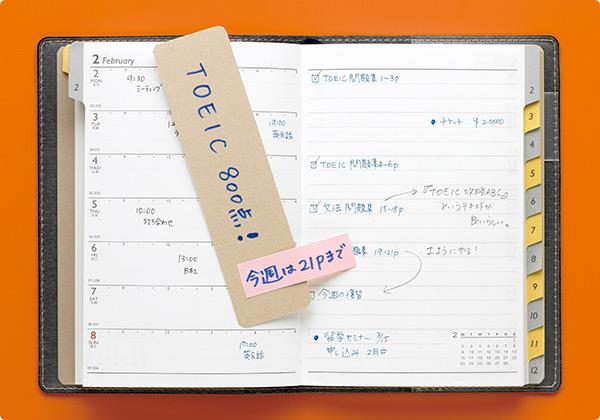 2 February
2
MON
9:30
ミーティング
3
TUE
19:00
英会話
4
WED
5
THU
10:00
打ち合わせ
6
FRI
13:00
B社
7
SAT
8
SUN
17:00
英会話
TOEIC 800点!
今週は21pまで
TOEIC問題集 1~3p
● チケット ¥20000
TOEIC 問題集4~6p
文法問題集 15~18p
『TOEIC 攻略ABC』
というテキストが
良いらしい。
題集 19~21p
土ようにやる!
今週の復習
● 留学セミナー 3/15
申し込み 2月中
2
2
3
4
5
6
7
8
9
10
11
12